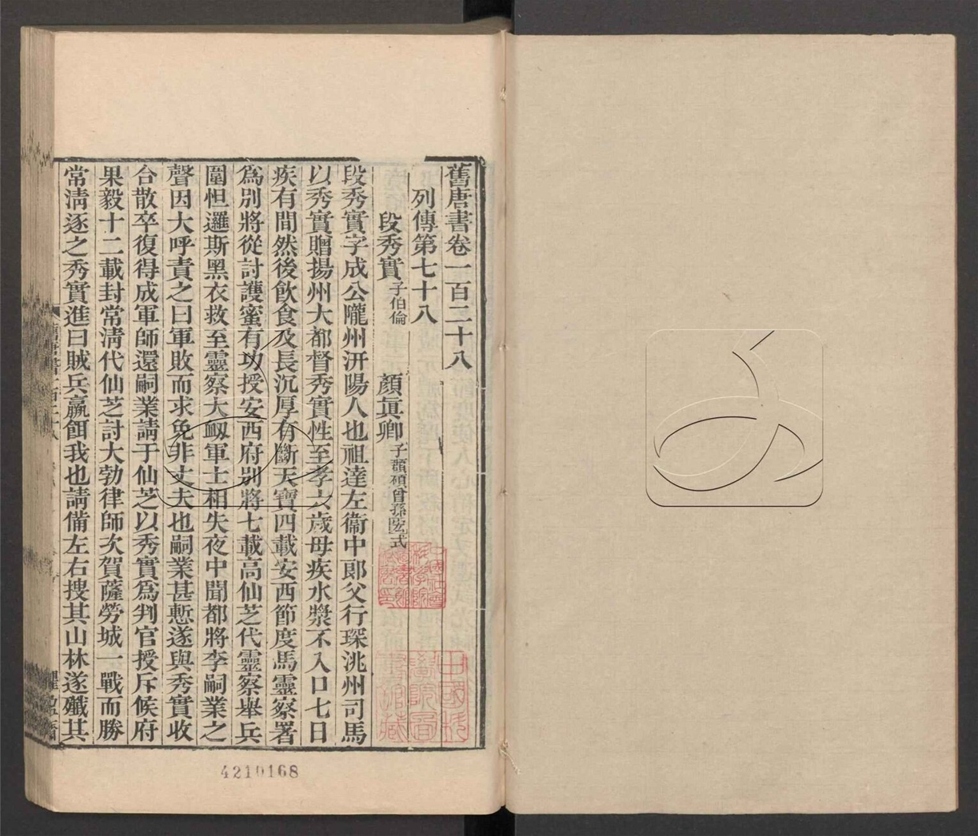 舊唐書卷一百二十八
列傳第七十八
段秀實子伯倫 顏眞卿子頵碩曾孫弘式
段秀實字成公隴州汧陽人也祖達左衞中郎父行琛洮州司馬
以秀實贈揚州大都督秀實性至孝六歲母疾水漿不入口七日
疾有間然後飲食及長沉厚有斷天寶四載安西節度馬靈察署
爲別將從討護蜜有功授安西府別將七載高仙芝代靈察舉兵
圍怛邏斯黑衣救至靈察大衂軍士相失夜中聞都將李嗣業之
聲因大呼責之曰軍敗而求免非丈夫也嗣業甚慙遂與秀實收
合散卒復得成軍師還嗣業請于仙芝以秀實爲判官授斥候府
果毅十二載封常淸代仙芝討大勃律師次賀薩勞城一戰而勝
常淸逐之秀實進曰賊兵羸餌我也請備左右搜其山林遂殲其
4210168